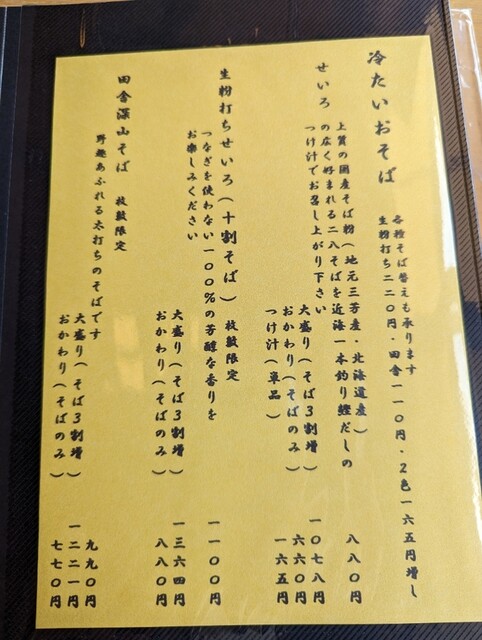 冷たいおそば
各種そば替えも承ります
生粉打ち二二〇円・田舎一一〇円・2色一六五円増し
せいろ
上質の国産そば粉(地元三芳産・北海道産)
の広く好まれる二八そばを近海一本釣り鰹だしの
つけ汁でお召し上がり下さい
八八〇円
大盛り(そば3割増) 一〇七八円
おかわり(そばのみ) 六六〇円
つけ汁(単品) 一六五円
生粉打ちせいろ(十割そば) 枚数限定
つなぎを使わない一〇〇%の芳醇な香りを
お楽しみください
一一〇〇円
大盛り(そば3割増) 一三六四円
おかわり(そばのみ) 八八〇円
田舎深山そば 枚数限定
野趣あふれる太打ちのそばです
九九〇円
大盛り(そば3割増) 一二二一円
おかわり(そばのみ) 七七〇円